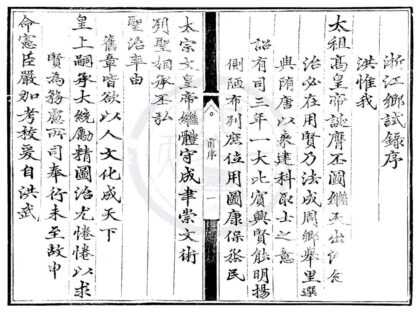 浙江鄉試錄序
洪惟我
太祖高皇帝誕膺丕圖繼天出
治必在用賢乃法成周鄉舉里選
與隋唐以來建科取士之意
詔有司三年一大比賓興賢能明揚
側陋布列庶位用圖康保烝民
前序 一
太宗文皇帝繼體守成聿崇文術
列聖相承丕弘
聖治率由
舊章皆欲以人文化成天下
皇上嗣承大統勵精圖治尤惓惓以求
賢為務慮所司奉行未至故申
命憲臣嚴加考校爰自洪武